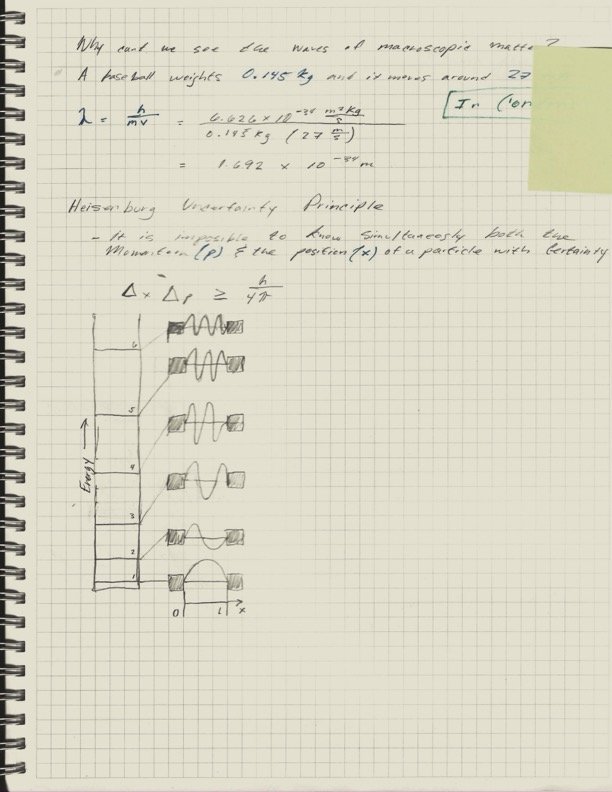 Why cant we see the waves of macroscopic matter?
A baseball weights 0.145 kg and it moves around 27
λ = h/mv = 6.626 × 10⁻³⁴ m² kg/s / 0.145 kg (27 m/s)
In
= 1.692 × 10⁻³⁴ m
Heisenburg Uncertainty Principle
- It is impossible to know simultaneosly both the
Momentum (p) & the position (x) of a particle with Certainty
Δx Δp ≥ h/4π
6
5
4
3
2
1
Energy →
0 L x